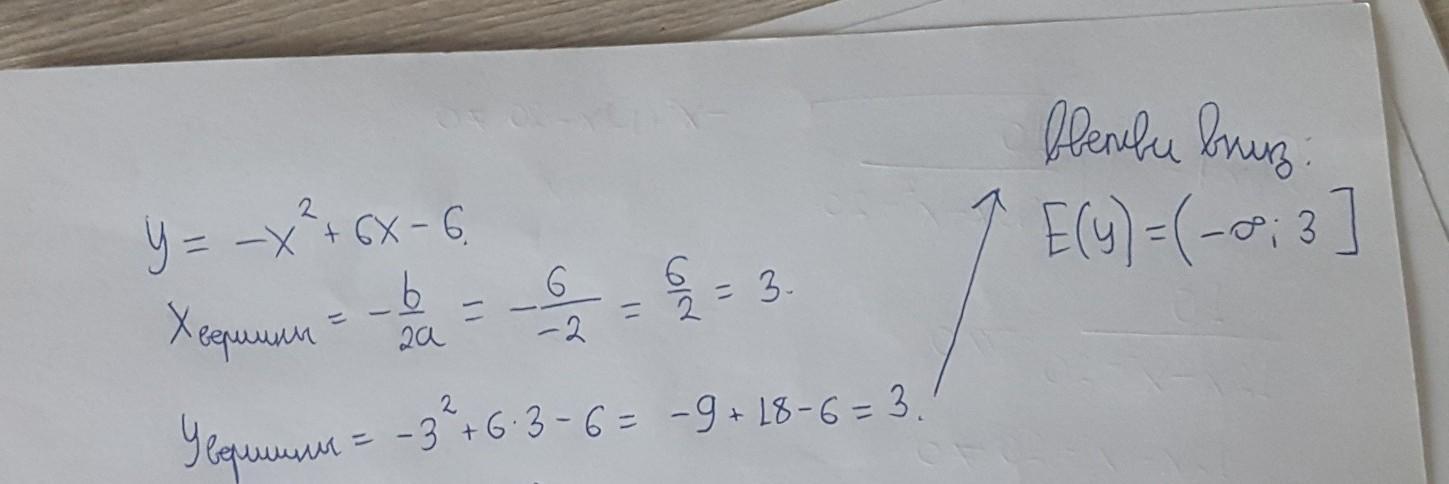 y = -x² + 6x - 6.
xвершины = -b/2a = -6/-2 = 6/2 = 3.
yвершины = -3² + 6·3 - 6 = -9 + 18 - 6 = 3.
Ветви вниз:
E(y) = (-∞; 3]